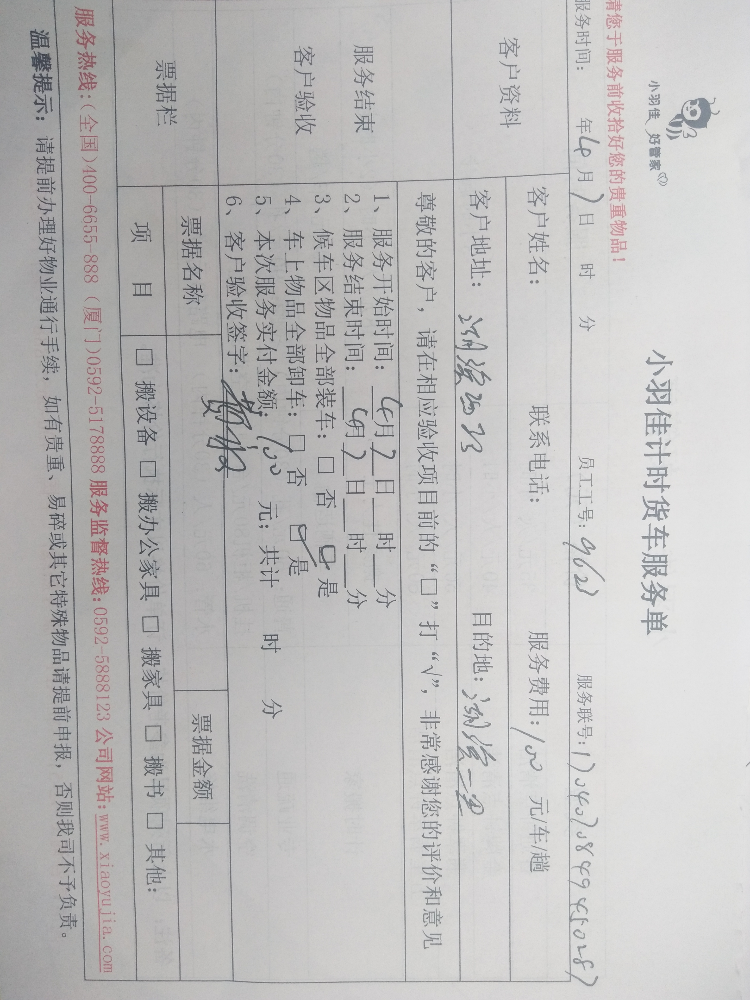 小羽佳 好管家
小羽佳计时货车服务单
请您于服务前收拾好您的贵重物品！
服务时间： 年4月7日 时 分 员工工号：9623 服务联号：
客户资料
客户姓名： 联系电话： 服务费用：100 元/车/趟
客户地址： 目的地：
尊敬的客户，请在相应验收项目前的“□”打“√”，非常感谢您的评价和意见
服务结束
客户验收
1、服务开始时间：4月7日__时__分
2、服务结束时间：4月7日__时__分
3、候车区物品全部装车：□ 否 □ 是
4、车上物品全部卸车：□ 否 □ 是
5、本次服务实付金额：100 元；共计 时 分
6、客户验收签字：
票据栏
票据名称 票据金额
项 目 □ 搬设备 □ 搬办公家具 □ 搬家具 □ 搬书 □ 其他：
服务热线：(全国)400-6655-888 (厦门)0592-5178888 服务监督热线：0592-5888123 公司网站：www.xiaoyujia.com
温馨提示：请提前办理好物业通行手续，如有贵重、易碎或其它特殊物品请提前申报，否则我司不予负责。